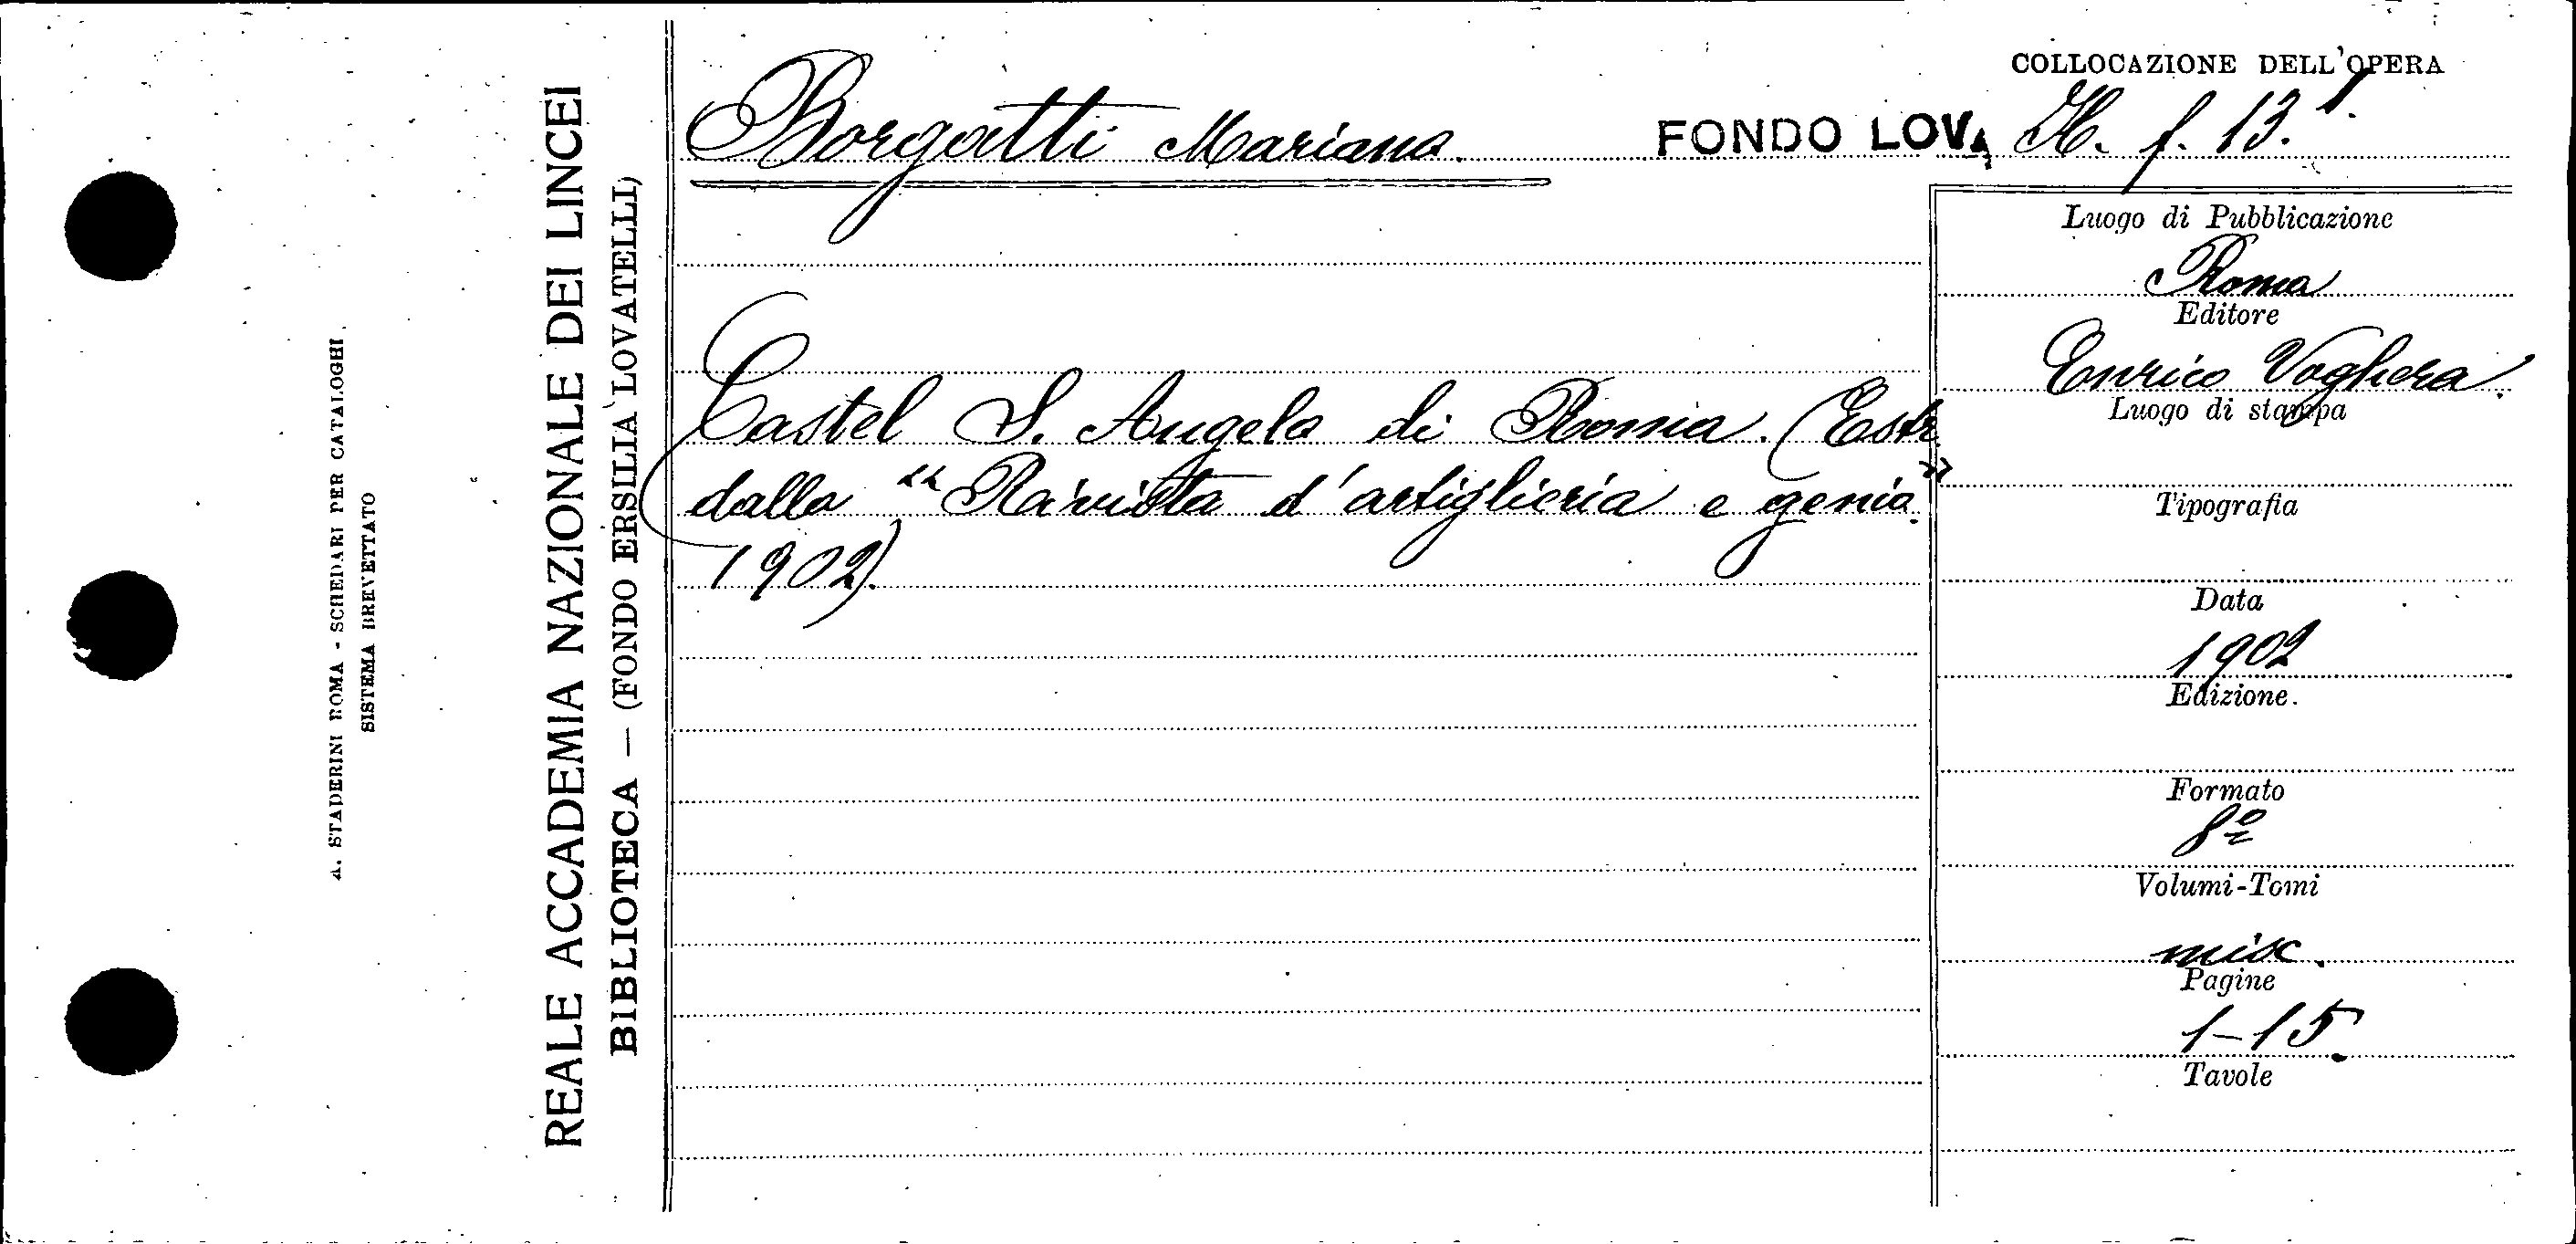 A. STADERINI ROMA - SCHEDARI PER CATALOGHI
SISTEMA BREVETTATO
REALE ACCADEMIA NAZIONALE DEI LINCEI
BIBLIOTECA — (FONDO ERSILIA LOVATELLI)
Borgatti Mariano.
Castel S. Angelo di Roma. (Estr.
dalla "Rivista d'artiglieria e genio"
1902).
COLLOCAZIONE DELL'OPERA
FONDO LOV. H. f. 13.
Luogo di Pubblicazione
Roma
Editore
Enrico Voghera.
Luogo di stampa
Tipografia
Data
1902
Edizione.
Formato
8º
Volumi-Tomi
misc.
Pagine
1-15.
Tavole